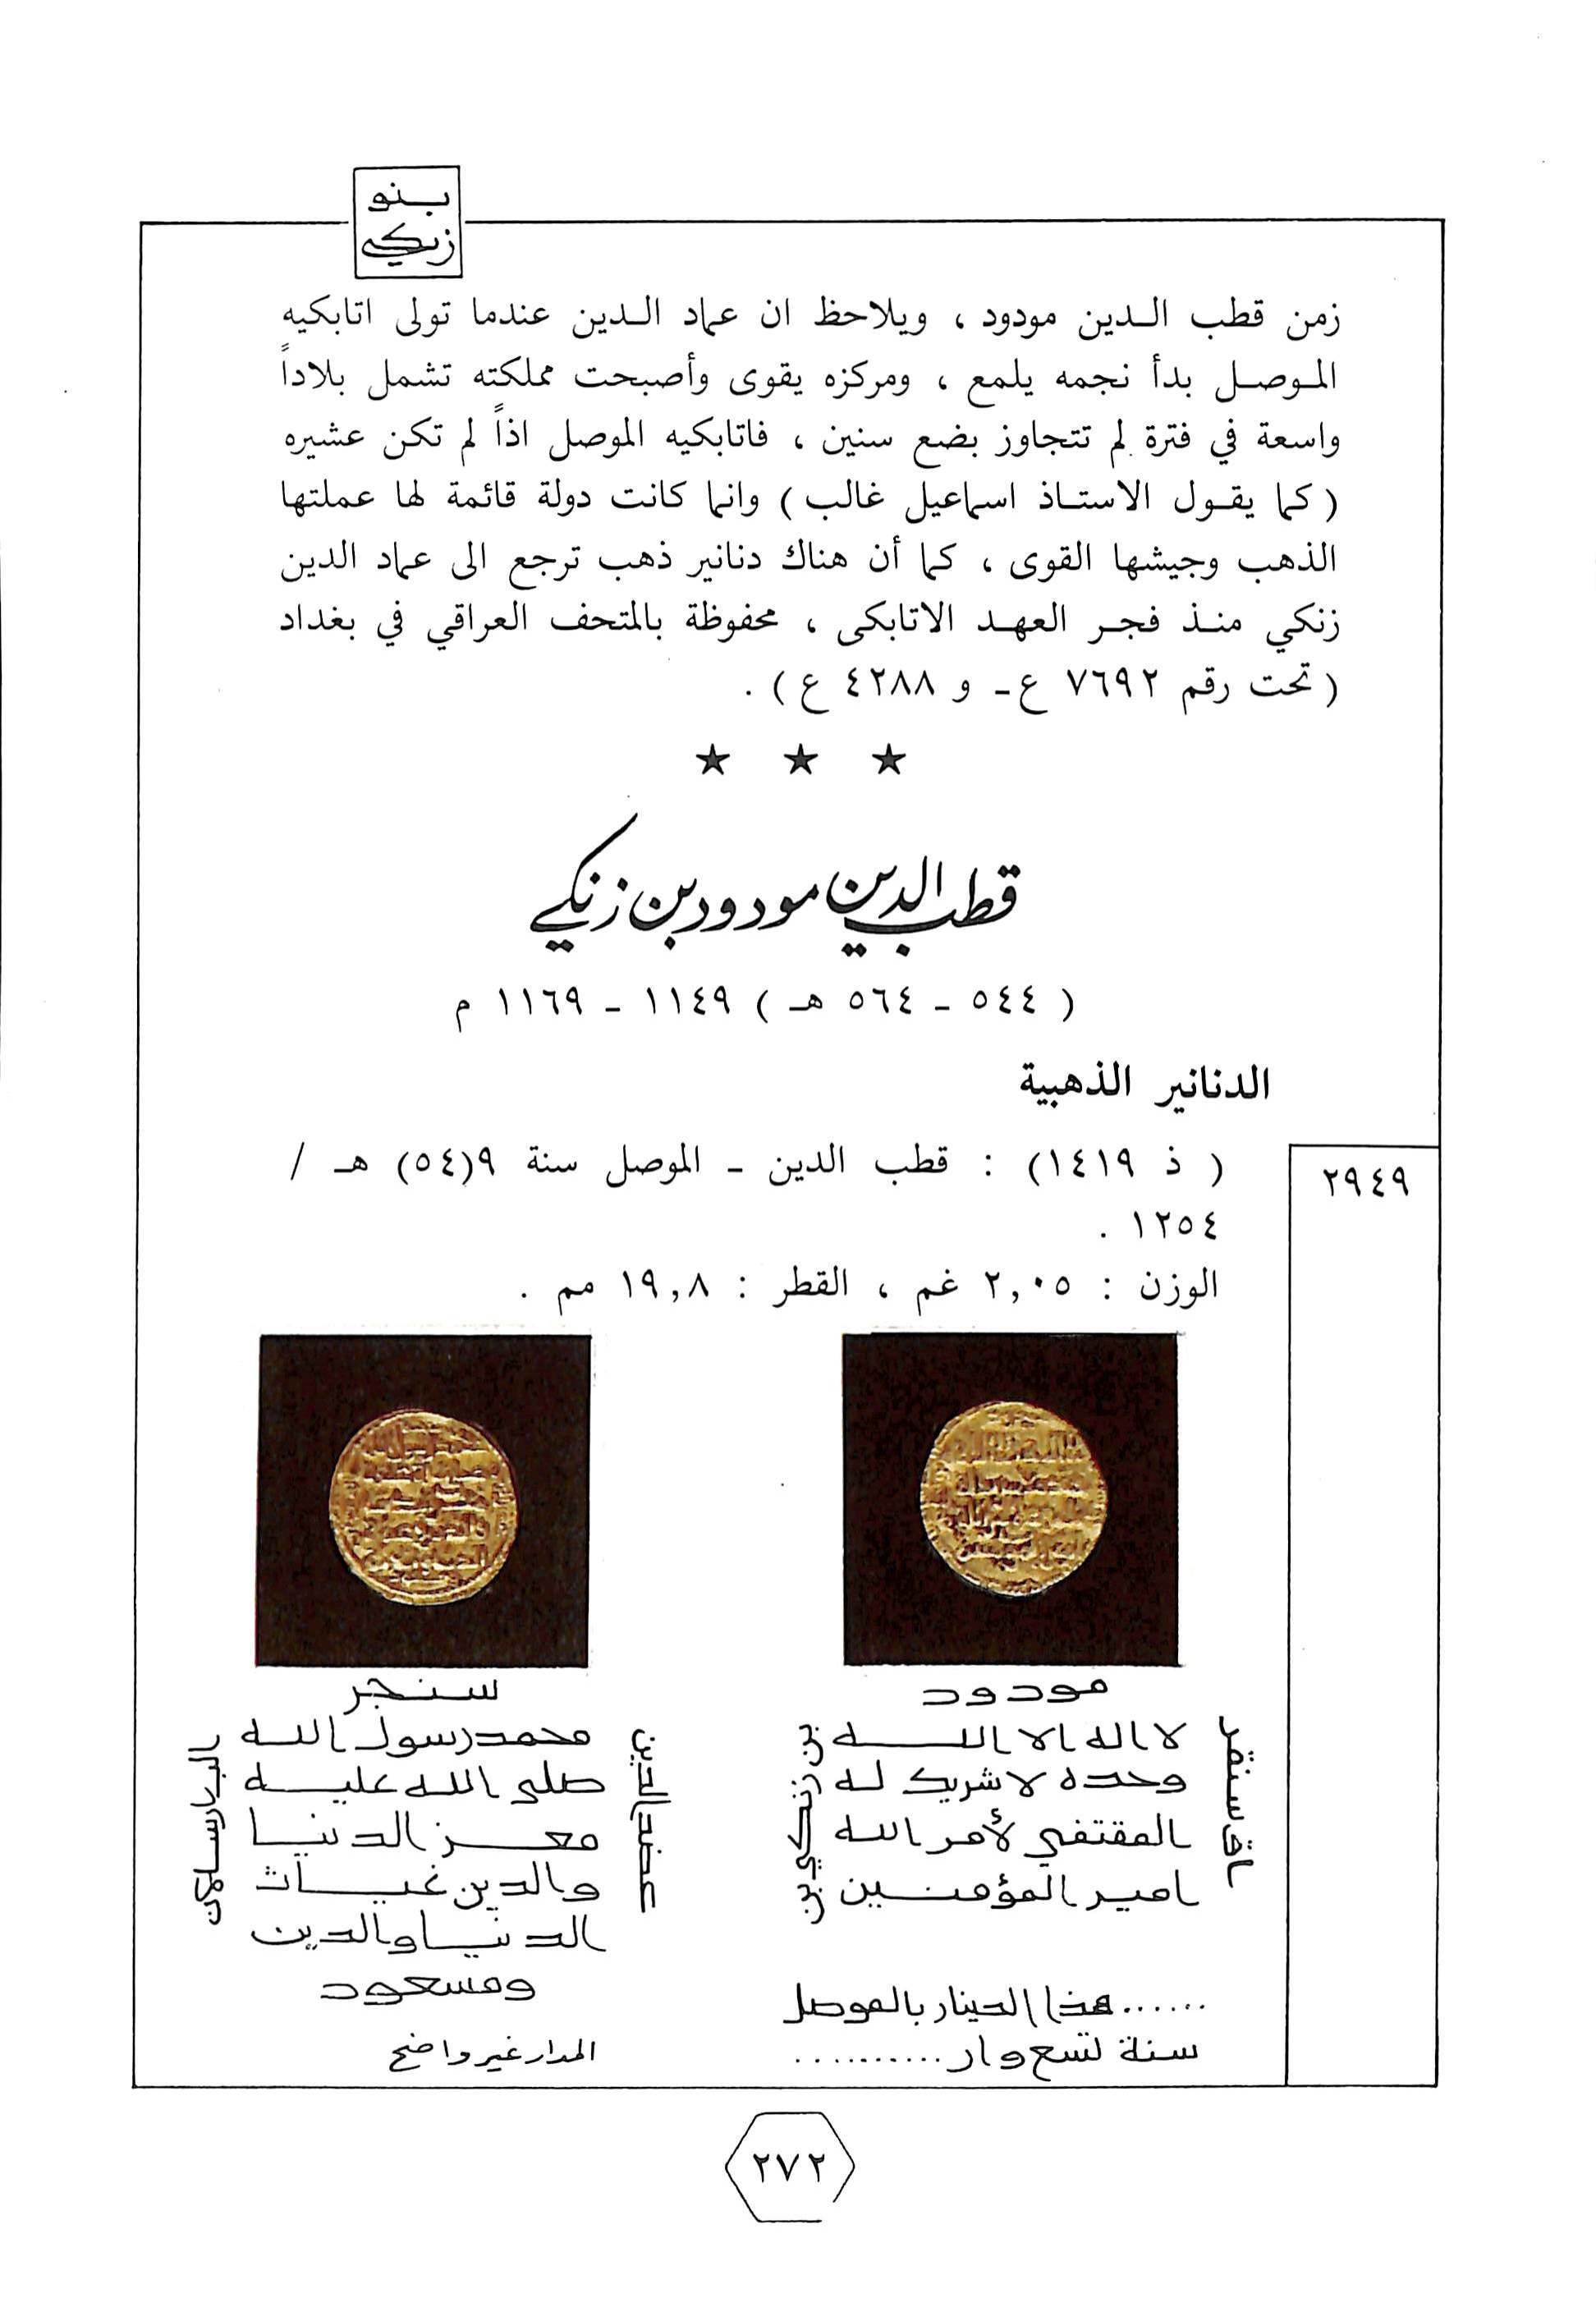 بنو
زنكي
زمن قطب الدين مودود ، ويلاحظ ان عماد الدين عندما تولى اتابكيه
الموصل بدأ نجمه يلمع ، ومركزه يقوى وأصبحت مملكته تشمل بلاداً
واسعة في فترة لم تتجاوز بضع سنين ، فاتابكيه الموصل اذاً لم تكن عشيره
( كما يقول الاستاذ اسماعيل غالب ) وانما كانت دولة قائمة لها عملتها
الذهب وجيشها القوى ، كما أن هناك دنانير ذهب ترجع الى عماد الدين
زنكي منذ فجر العهد الاتابكى ، محفوظة بالمتحف العراقي في بغداد
( تحت رقم ٧٦٩٢ ع - و ٤٢٨٨ ع ) .
★ ★ ★
قطب الدين مودود بن زنكي
( ٥٤٤ - ٥٦٤ هـ ) ١١٤٩ - ١١٦٩ م
الدنانير الذهبية
٢٩٤٩
( ذ ١٤١٩ ) : قطب الدين - الموصل سنة ٩(٥٤) هـ /
١٢٥٤ .
الوزن : ٢,٠٥ غم ، القطر : ١٩,٨ مم .
مودود
لا اله الا الله
وحده لا شريك له
المقتفي لأمر الله
امير المؤمنين
اق سنقر
بن زنكي بن
...... هذا الدينار بالموصل
سنة تسع وار ..........
سنجر
محمد رسول الله
صلى الله عليه
معز الدنيا
والدين غياث
الدنيا والدين
ومسعود
عضد الدين
الب ارسلان
المدار غير واضح
٢٧٢